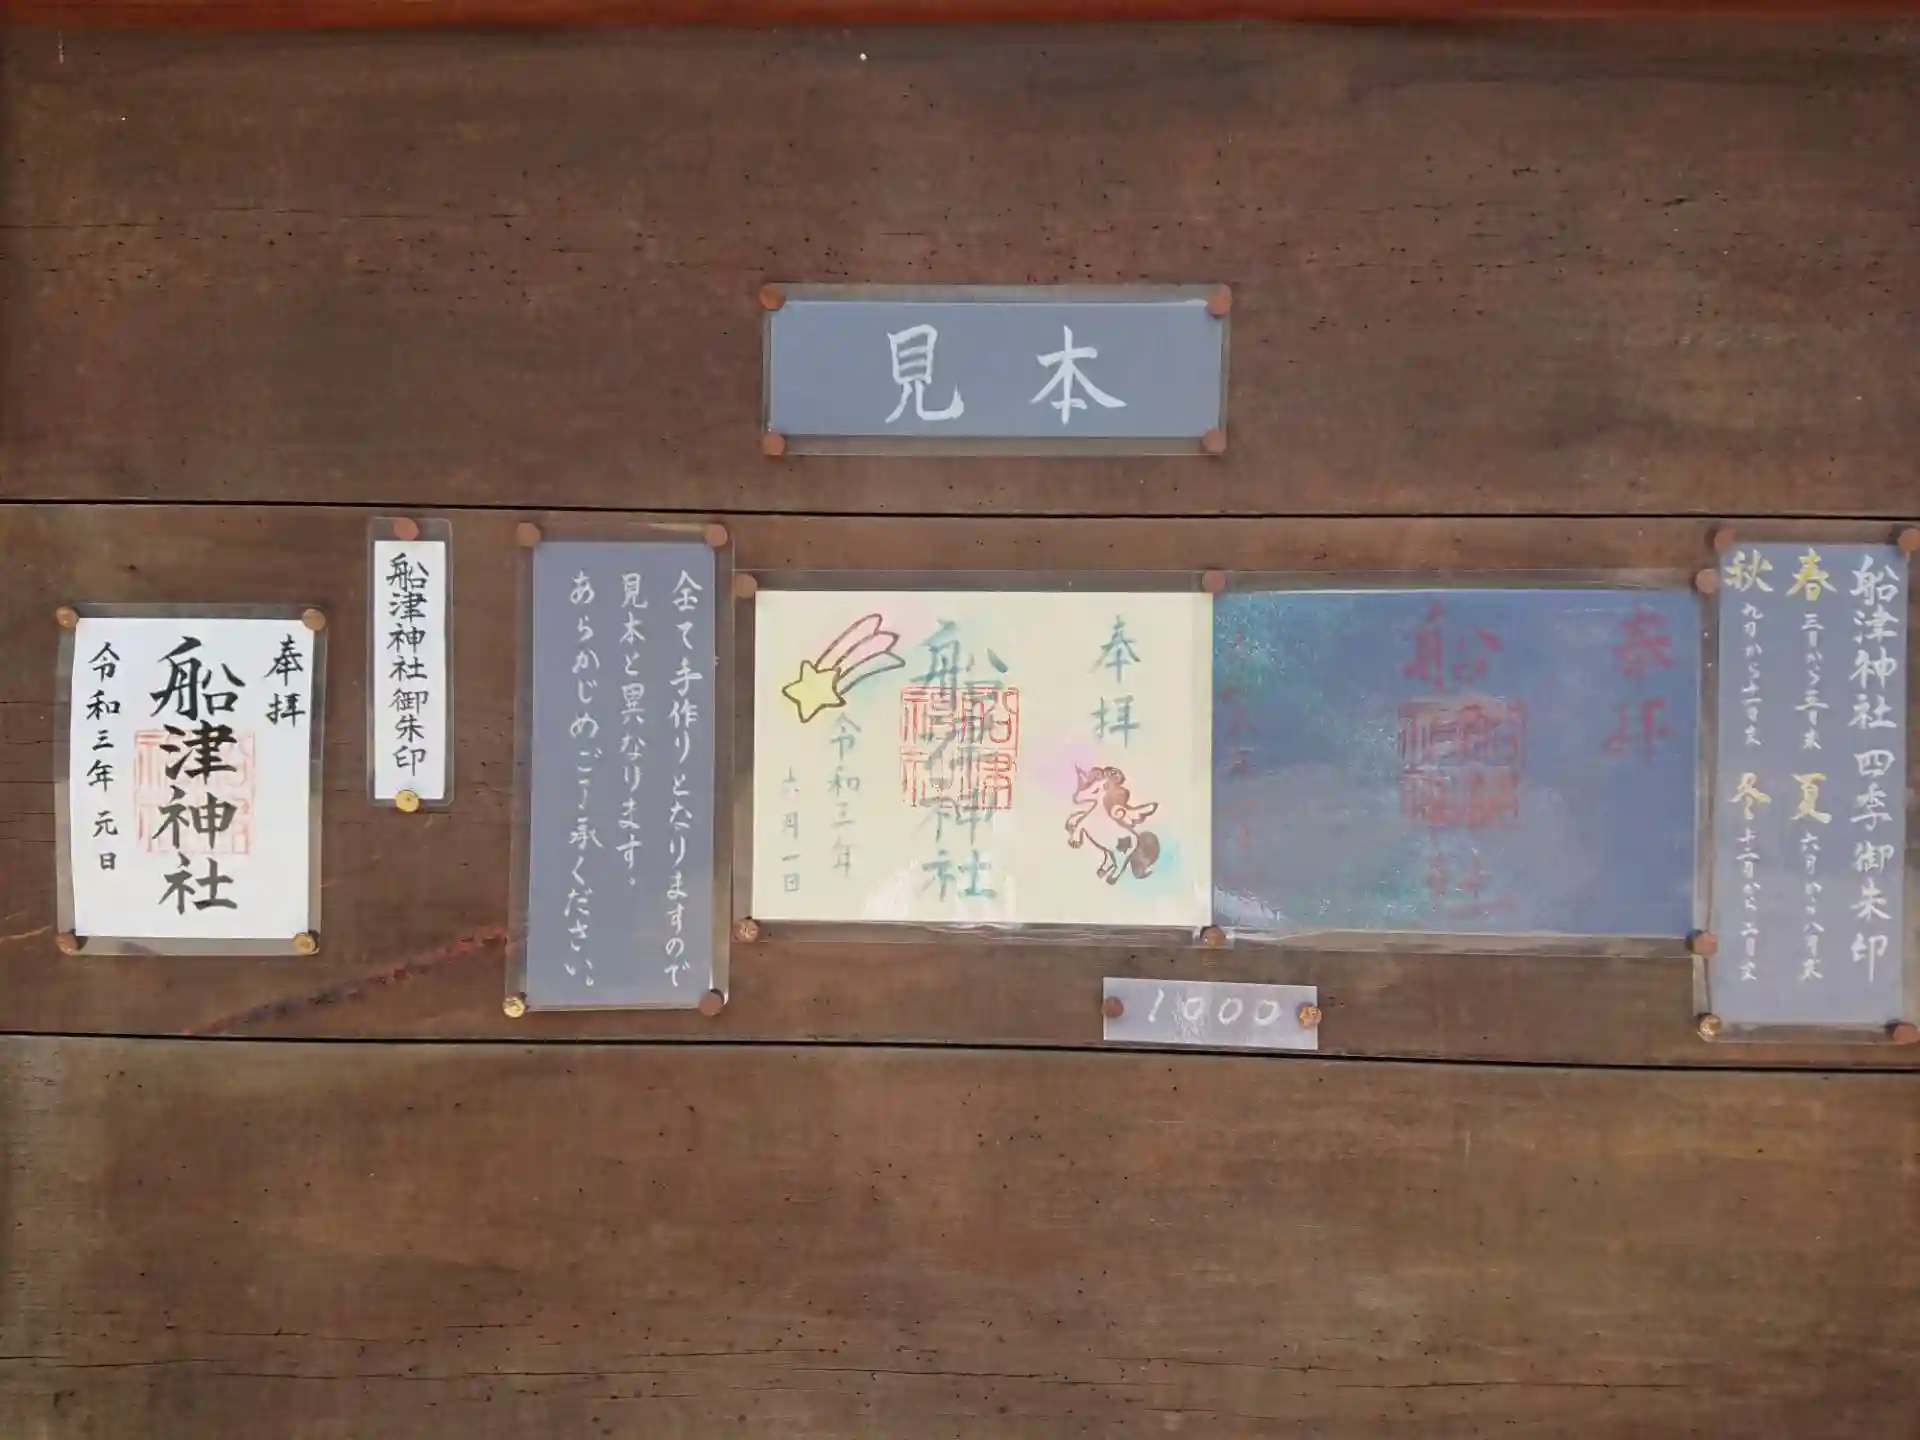 見本
船津神社 四季御朱印
春 三月から五月末 夏 六月から八月末
秋 九月から十一月末 冬 十二月から二月末
奉拝
船
社
奉拝
船津神社
令和三年
六月一日
1000
全て手作りとなりますので
見本と異なります。
あらかじめご了承ください。
船津神社御朱印
奉拝
船津神社
令和三年 元日